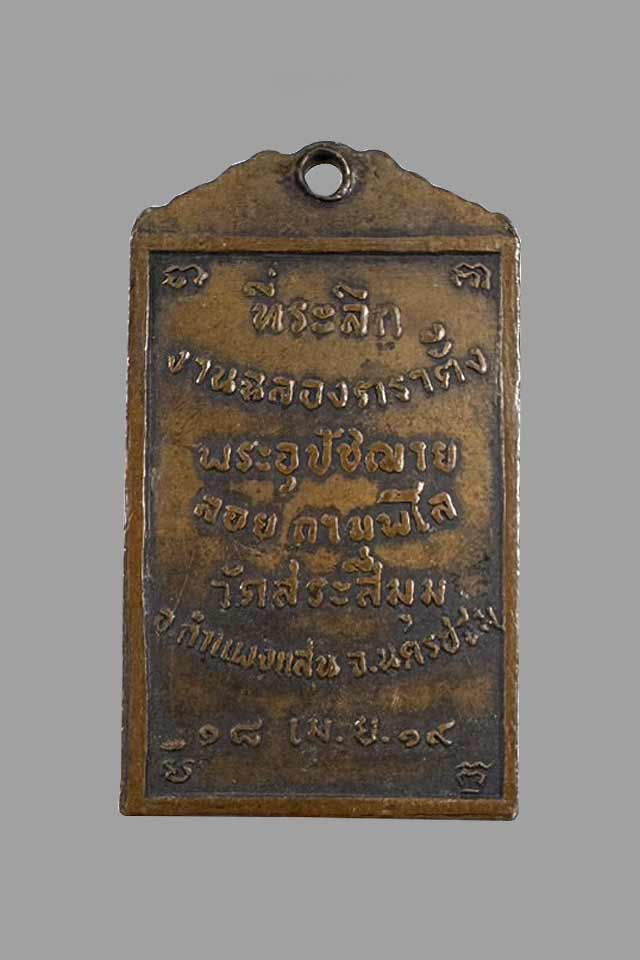 ที่ระลึก
งานฉลองตราตั้ง
พระอุปัชฌาย
ลอย
วัดสระสี่มุม
อ.กำแพงแสน จ.นครปฐม
๑๘ เม.ย.๑๙